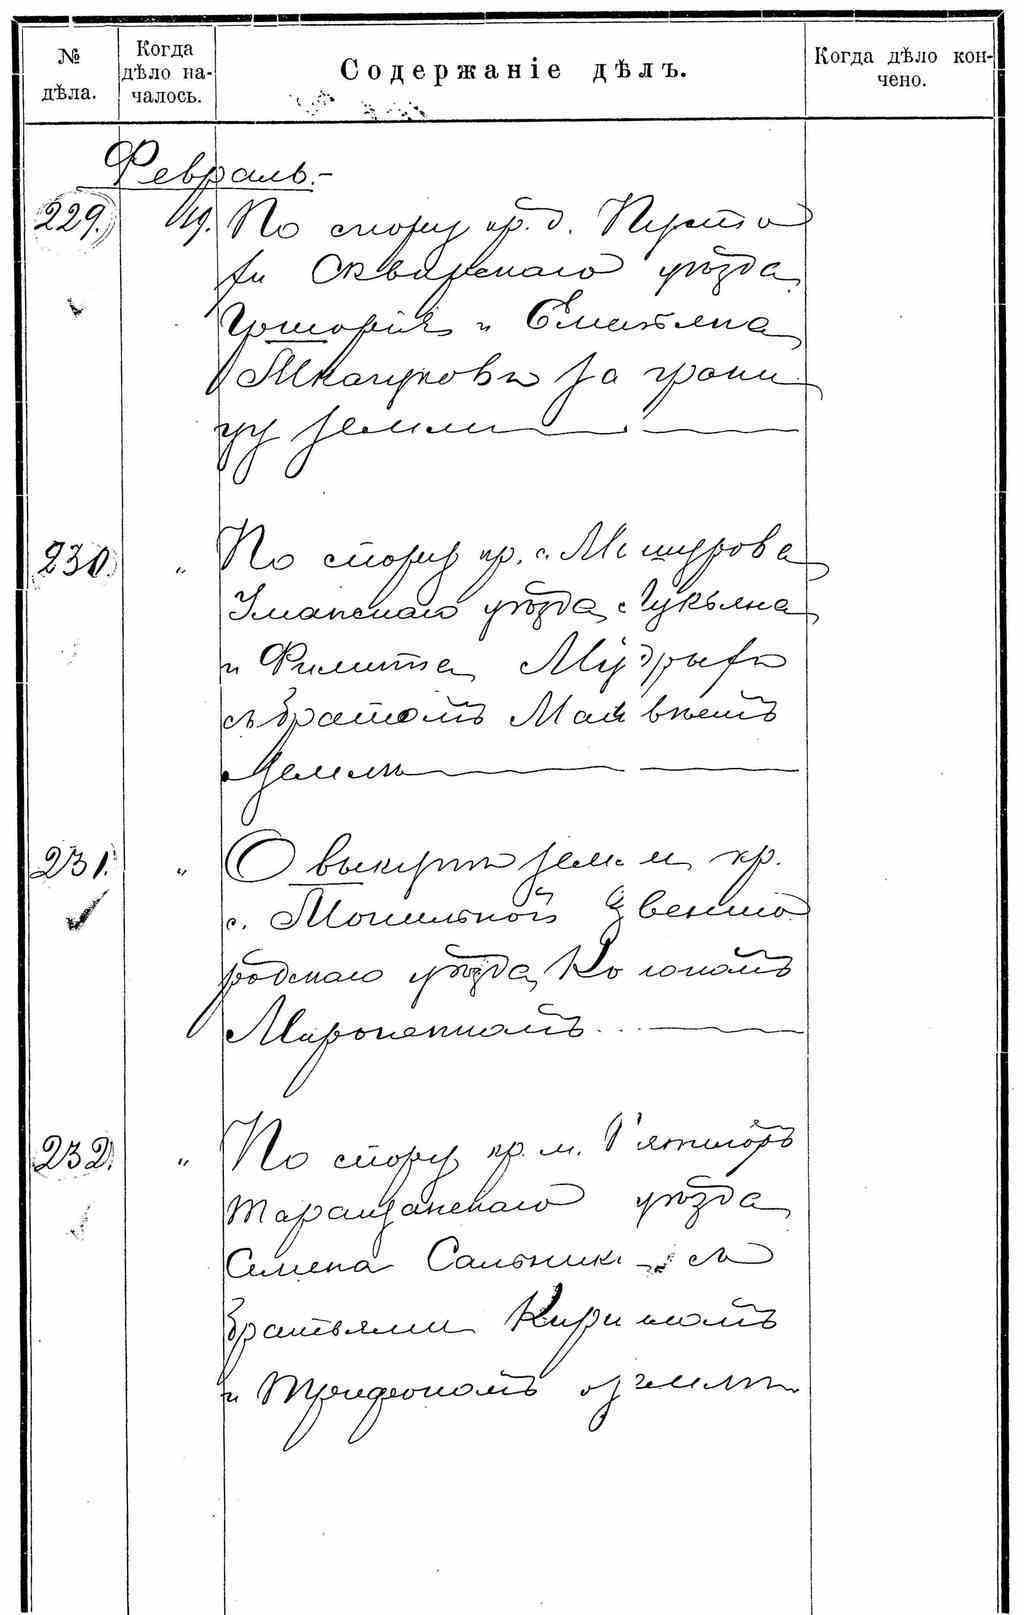 № дѣла.
Когда дѣло началось.
Содержаніе дѣлъ.
Когда дѣло кончено.
Февраль.-
229. 19. По спору кр. д. Пусто
хи Сквирскаго уѣзда
Григорія и Емельяна
за грани
цу земли
230. „ По спору кр. с. Машурова
Уманскаго уѣзда, Лукьяна
и Филиппа Мудрыхъ
съ братомъ Матвѣемъ
землѣ
231. „ О выкупѣ земли кр.
с. Могильной Звениго
родскаго уѣзда
Марченкомъ
232. „ По спору кр. м. Пятигоръ
Таращанскаго уѣзда
Семена Сальника съ
братьями Кириломъ
и Трифономъ о землѣ